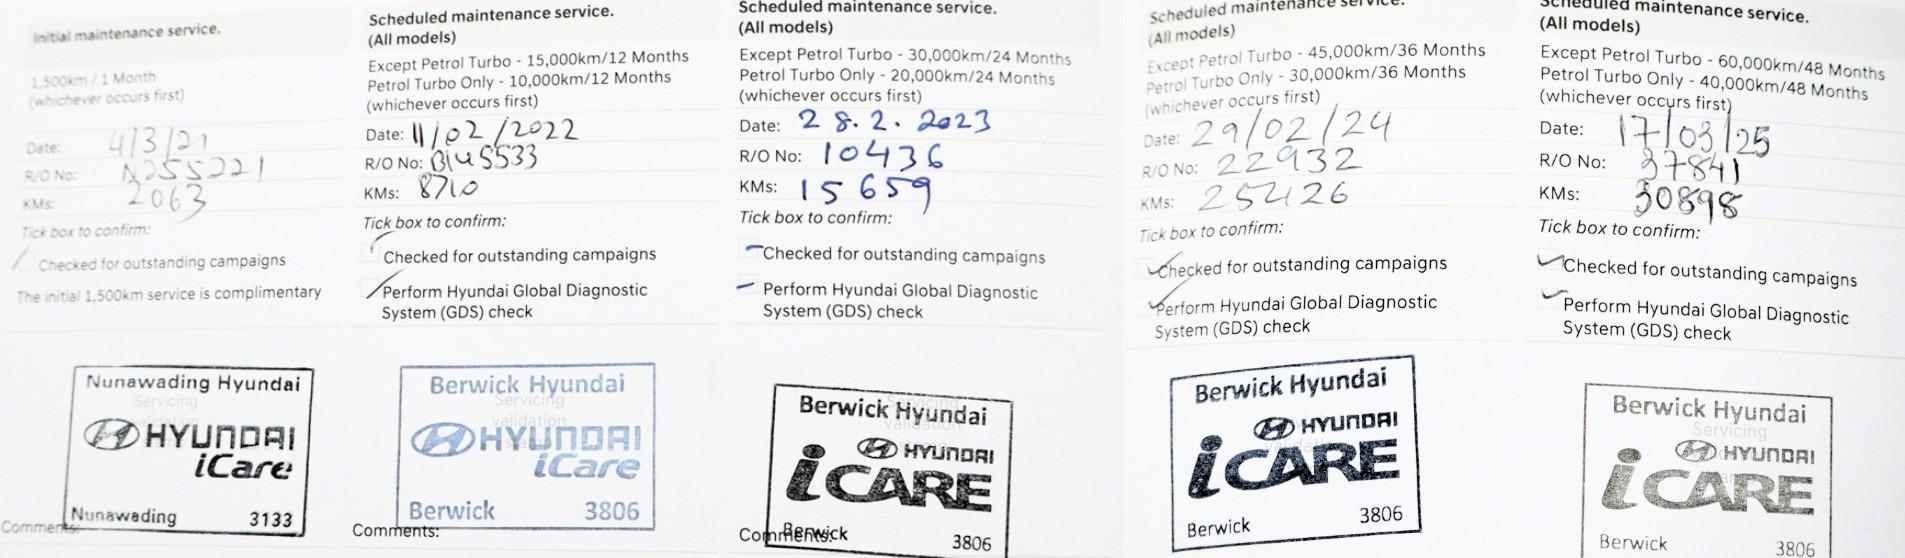 Initial maintenance service.
1,500km / 1 Month
(whichever occurs first)
Date: 4/3/21
R/O No: N255221
KMs: 2063
Tick box to confirm:
Checked for outstanding campaigns
The initial 1,500km service is complimentary
Nunawading Hyundai
Servicing
validation
HYUNDAI
iCare
Nunawading 3133
Comments:
Scheduled maintenance service.
(All models)
Except Petrol Turbo - 15,000km/12 Months
Petrol Turbo Only - 10,000km/12 Months
(whichever occurs first)
Date: 11/02/2022
R/O No: B145533
KMs: 8710
Tick box to confirm:
Checked for outstanding campaigns
Perform Hyundai Global Diagnostic
System (GDS) check
Berwick Hyundai
Servicing
validation
HYUNDAI
iCare
Berwick 3806
Comments:
Scheduled maintenance service.
(All models)
Except Petrol Turbo - 30,000km/24 Months
Petrol Turbo Only - 20,000km/24 Months
(whichever occurs first)
Date: 28.2.2023
R/O No: 10436
KMs: 15659
Tick box to confirm:
Checked for outstanding campaigns
Perform Hyundai Global Diagnostic
System (GDS) check
Berwick Hyundai
Servicing
validation
HYUNDAI
iCARE
Berwick 3806
Comments:
Scheduled maintenance service.
(All models)
Except Petrol Turbo - 45,000km/36 Months
Petrol Turbo Only - 30,000km/36 Months
(whichever occurs first)
Date: 29/02/24
R/O No: 22932
KMs: 25426
Tick box to confirm:
Checked for outstanding campaigns
Perform Hyundai Global Diagnostic
System (GDS) check
Berwick Hyundai
HYUNDAI
iCARE
Berwick 3806
Scheduled maintenance service.
(All models)
Except Petrol Turbo - 60,000km/48 Months
Petrol Turbo Only - 40,000km/48 Months
(whichever occurs first)
Date: 17/03/25
R/O No: 37841
KMs: 30898
Tick box to confirm:
Checked for outstanding campaigns
Perform Hyundai Global Diagnostic
System (GDS) check
Berwick Hyundai
Servicing
HYUNDAI
iCARE
Berwick 3806